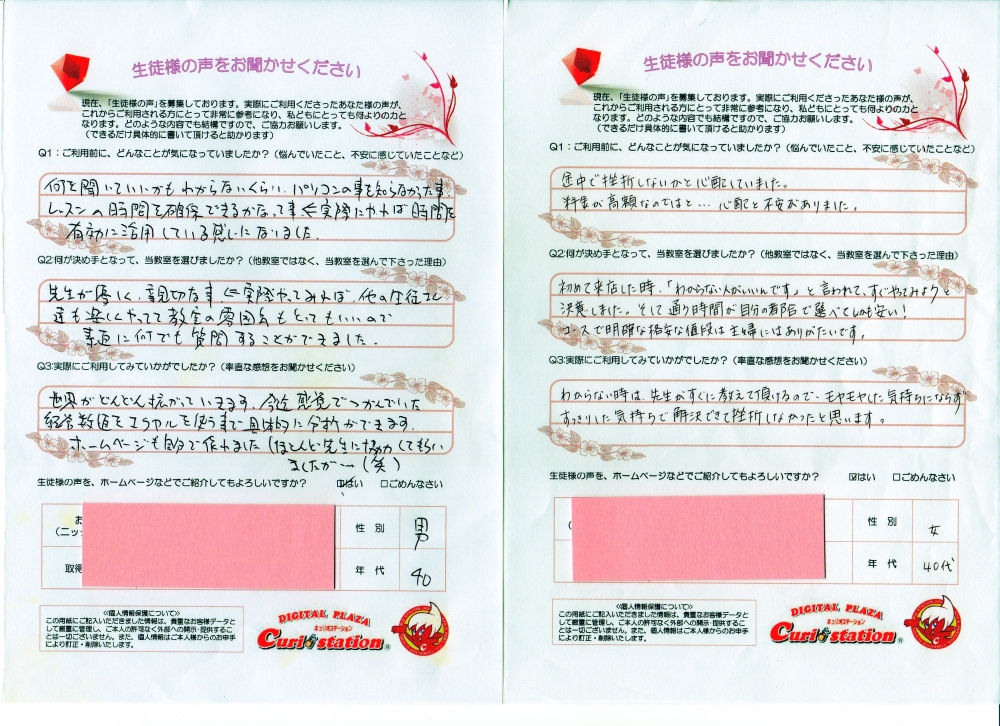 生徒様の声をお聞かせください
現在、「生徒様の声」を募集しております。実際にご利用くださったあなた様の声が、
これからご利用される方にとって非常に参考になり、私どもにとっても何よりの力と
なります。どのような内容でも結構ですので、ご協力お願いします。
（できるだけ具体的に書いて頂けると助かります）
Q1：ご利用前に、どんなことが気になっていましたか？（悩んでいたこと、不安に感じていたことなど）
何を聞いていいかもわからないくらい、パソコンの事を知らなかった事。
レッスンの時間を確保できるかなって事⇐実際にやれば時間を
有効に活用している感じになりました。
Q2:何が決め手となって、当教室を選びましたか？（他教室ではなく、当教室を選んで下さった理由）
先生が優しく、親切な事⇐実際やってみれば、他の生徒さん
達も楽しくやってて教室の雰囲気もとてもいいので
素直に何でも質問することができました。
Q3:実際にご利用してみていかがでしたか？（率直な感想をお聞かせください）
世界がどんどん拡がっていきます。今迄感覚でつかんでいた
経営数値をエクセルを使うまで具体的に分析ができます。
ホームページも自分で作れました（ほとんど先生に協力して もらい
ましたが〜（笑）
生徒様の声を、ホームページなどでご紹介してもよろしいですか？ ☑はい □ごめんなさい
お
（ニッ
性 別 男
取得
年 代 40
≪個人情報保護について≫
この用紙にご記入いただきました情報は、貴重なお客様データと
して厳重に管理し、ご本人の許可なく外部への開示・提供するこ
とは一切ございません。また、個人情報はご本人様からのお申手
により訂正・削除いたします。
DIGITAL PLAZA
キュリオステーション
Curio station®
生徒様の声をお聞かせください
現在、「生徒様の声」を募集しております。実際にご利用くださったあなた様の声が、
これからご利用される方にとって非常に参考になり、私どもにとっても何よりの力と
なります。どのような内容でも結構ですので、ご協力お願いします。
（できるだけ具体的に書いて頂けると助かります）
Q1：ご利用前に、どんなことが気になっていましたか？（悩んでいたこと、不安に感じていたことなど）
途中で挫折しないかと心配していました。
料金が高額なのではと…心配と不安がありました。
Q2:何が決め手となって、当教室を選びましたか？（他教室ではなく、当教室を選んで下さった理由）
初めて来店した時、「わからない人がいいんです」と言われて、すぐやってみようと
決意しました。そして通う時間が自分の都合で選べてしかも安い！
コースで明確な格安な値段は主婦にはありがたいです。
Q3:実際にご利用してみていかがでしたか？（率直な感想をお聞かせください）
わからない時は、先生がすぐに教えて頂けるので、モヤモヤした気持ちにならず
すっきりした気持ちで解決できて挫折しなかったと思います。
生徒様の声を、ホームページなどでご紹介してもよろしいですか？ ☑はい □ごめんなさい
（
性 別 女
年 代 40代
≪個人情報保護について≫
この用紙にご記入いただきました情報は、貴重なお客様データと
して厳重に管理し、ご本人の許可なく外部への開示・提供するこ
とは一切ございません。また、個人情報はご本人様からのお申手
により訂正・削除いたします。
DIGITAL PLAZA
キュリオステーション
Curio station®